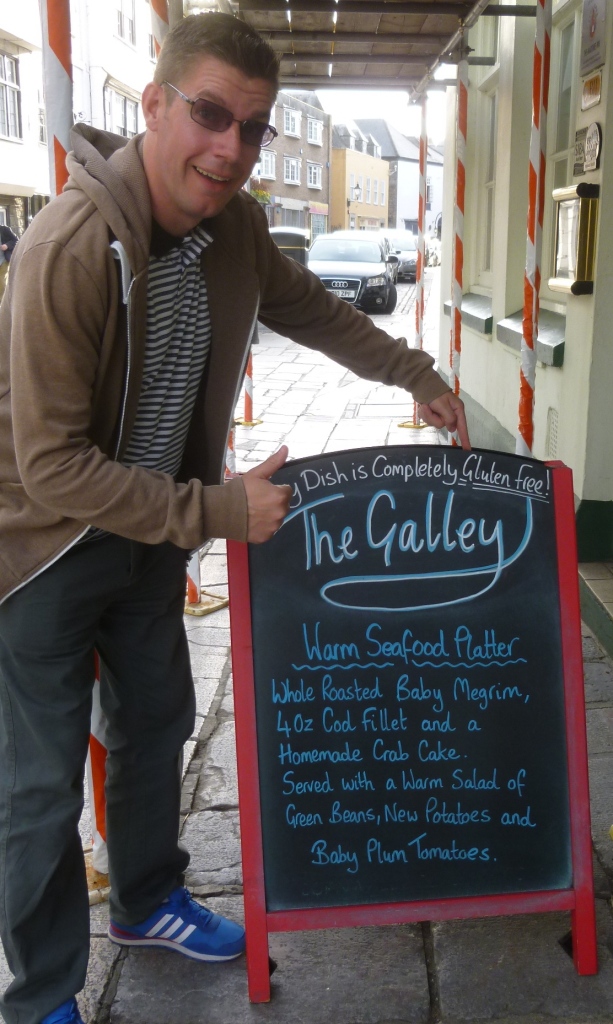 Dish is Completely Gluten Free!
The Galley
Warm Seafood Platter
Whole Roasted Baby Megrim,
4oz Cod Fillet and a
Homemade Crab Cake.
Served with a Warm Salad of
Green Beans, New Potatoes and
Baby Plum Tomatoes.